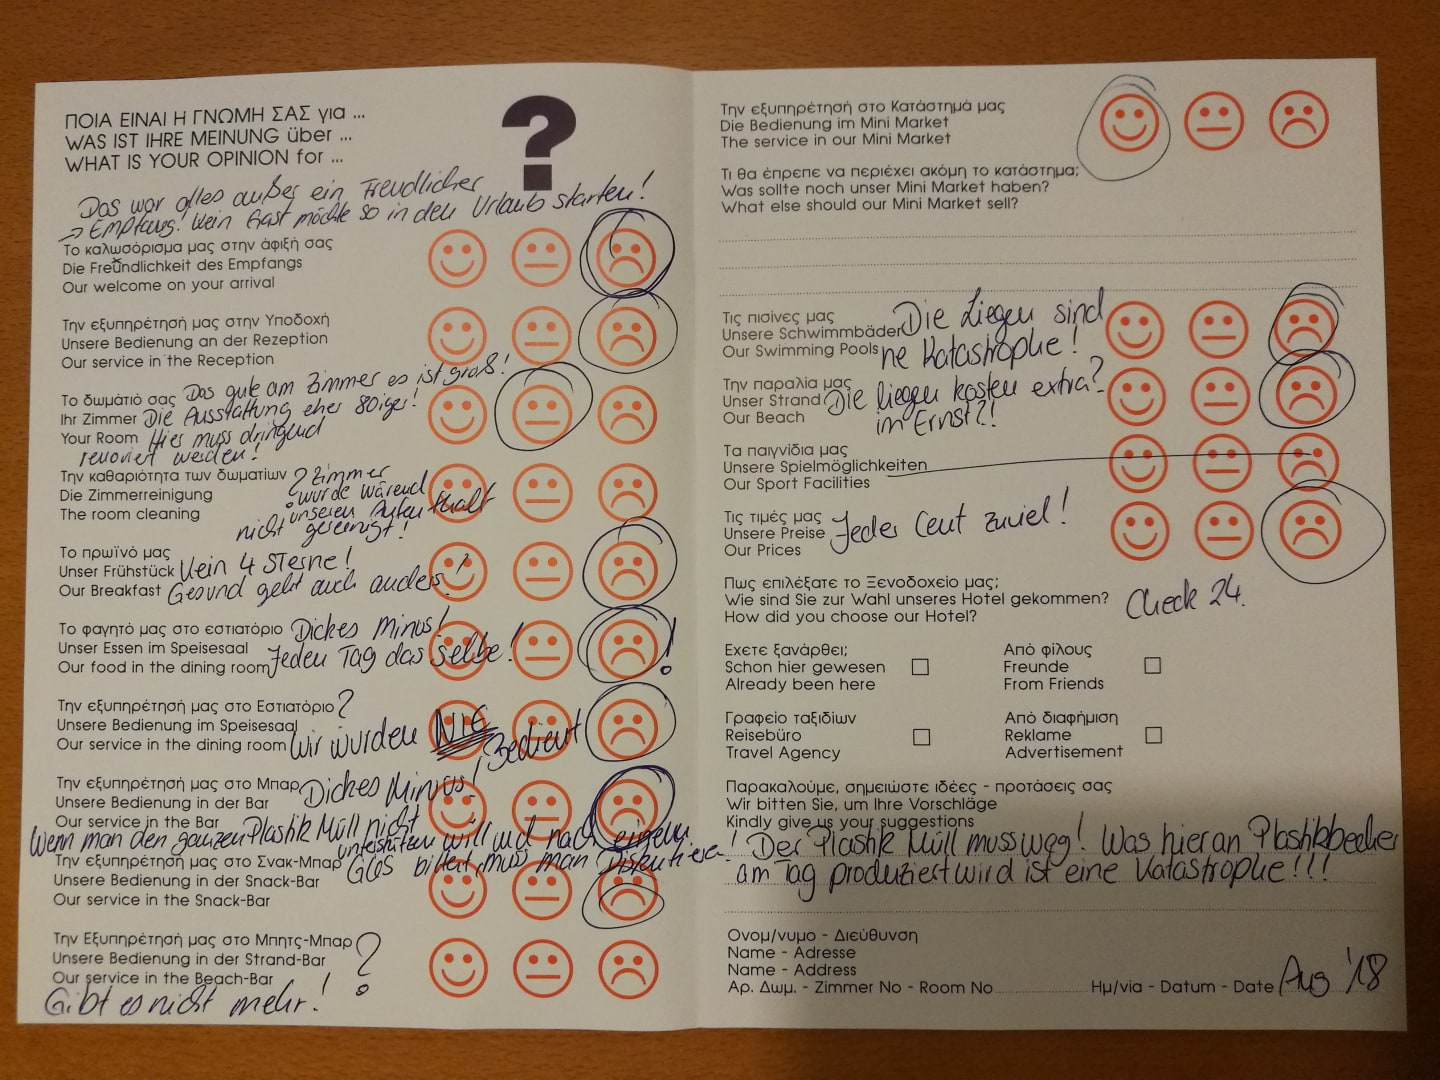 ΠΟΙΑ ΕΙΝΑΙ Η ΓΝΩΜΗ ΣΑΣ για ...
WAS IST IHRE MEINUNG über ...
WHAT IS YOUR OPINION for ...
?
Das war alles außer ein Freudlicher
→ Empfang! Kein Gast möchte so in den Urlaub starten!
Το καλωσόρισμα μας στην άφιξή σας
Die Freundlichkeit des Empfangs
Our welcome on your arrival
Την εξυπηρέτησή μας στην Υποδοχή
Unsere Bedienung an der Rezeption
Our service in the Reception
Das gute am Zimmer es ist groß!
Το δωμάτιό σας
Ihr Zimmer Die Ausstattung eher 80iger!
Your Room Hier muss dringend
renoviert werden!
Την καθαριότητα των δωματίων ? Zimmer
Die Zimmerreinigung wurde wärend
The room cleaning unseren Aufenthalt
nicht gereinigt!
Το πρωϊνό μας
Unser Frühstück Kein 4 Sterne!
Our Breakfast Gesund geht auch anders!
Το φαγητό μας στο εστιατόριο Dickes Minus!
Unser Essen im Speisesaal
Our food in the dining room Jeden Tag das selbe! !
Την εξυπηρέτησή μας στο Εστιατόριο ?
Unsere Bedienung im Speisesaal
Our service in the dining room Wir wurden NIE Bedient
Την εξυπηρέτησή μας στο Μπαρ Dickes Minus!
Unsere Bedienung in der Bar
Our service in the Bar
Wenn man den ganzen Plastik Müll nicht
unterstützen will und nach
Την εξυπηρέτησή μας στο Σνακ-Μπαρ Glas bittet, muss man Diskutieren!
Unsere Bedienung in der Snack-Bar
Our service in the Snack-Bar
Την Εξυπηρέτησή μας στο Μπητς-Μπαρ ?
Unsere Bedienung in der Strand-Bar
Our service in the Beach-Bar
Gibt es nicht mehr!
Την εξυπηρέτησή στο Κατάστημά μας
Die Bedienung im Mini Market
The service in our Mini Market
Τι θα έπρεπε να περιέχει ακόμη το κατάστημα;
Was sollte noch unser Mini Market haben?
What else should our Mini Market sell?
Τις πισίνες μας
Unsere Schwimmbäder Die Liegen sind
Our Swimming Pools ne Katastrophe!
Την παραλία μας
Unser Strand Die liegen kosten extra?
Our Beach im Ernst?!
Τα παιγνίδια μας
Unsere Spielmöglichkeiten
Our Sport Facilities
Τις τιμές μας
Unsere Preise Jeder Cent zuviel!
Our Prices
Πως επιλέξατε το Ξενοδοχείο μας;
Wie sind Sie zur Wahl unseres Hotel gekommen? Check 24.
How did you choose our Hotel?
Εχετε ξανάρθει;
Schon hier gewesen
Already been here
Από φίλους
Freunde
From Friends
Γραφείο ταξιδίων
Reisebüro
Travel Agency
Από διαφήμιση
Reklame
Advertisement
Παρακαλούμε, σημειώστε ιδέες - προτάσεις σας
Wir bitten Sie, um Ihre Vorschläge
Kindly give us your suggestions
Der Plastik Müll muss weg! Was hier an Plastikbecher
am Tag produziert wird ist eine Katastrophe!!!
Ονομ/νυμο - Διεύθυνση
Name - Adresse
Name - Address
Αρ. Δωμ. - Zimmer No - Room No Ημ/νία - Datum - Date Aug '18